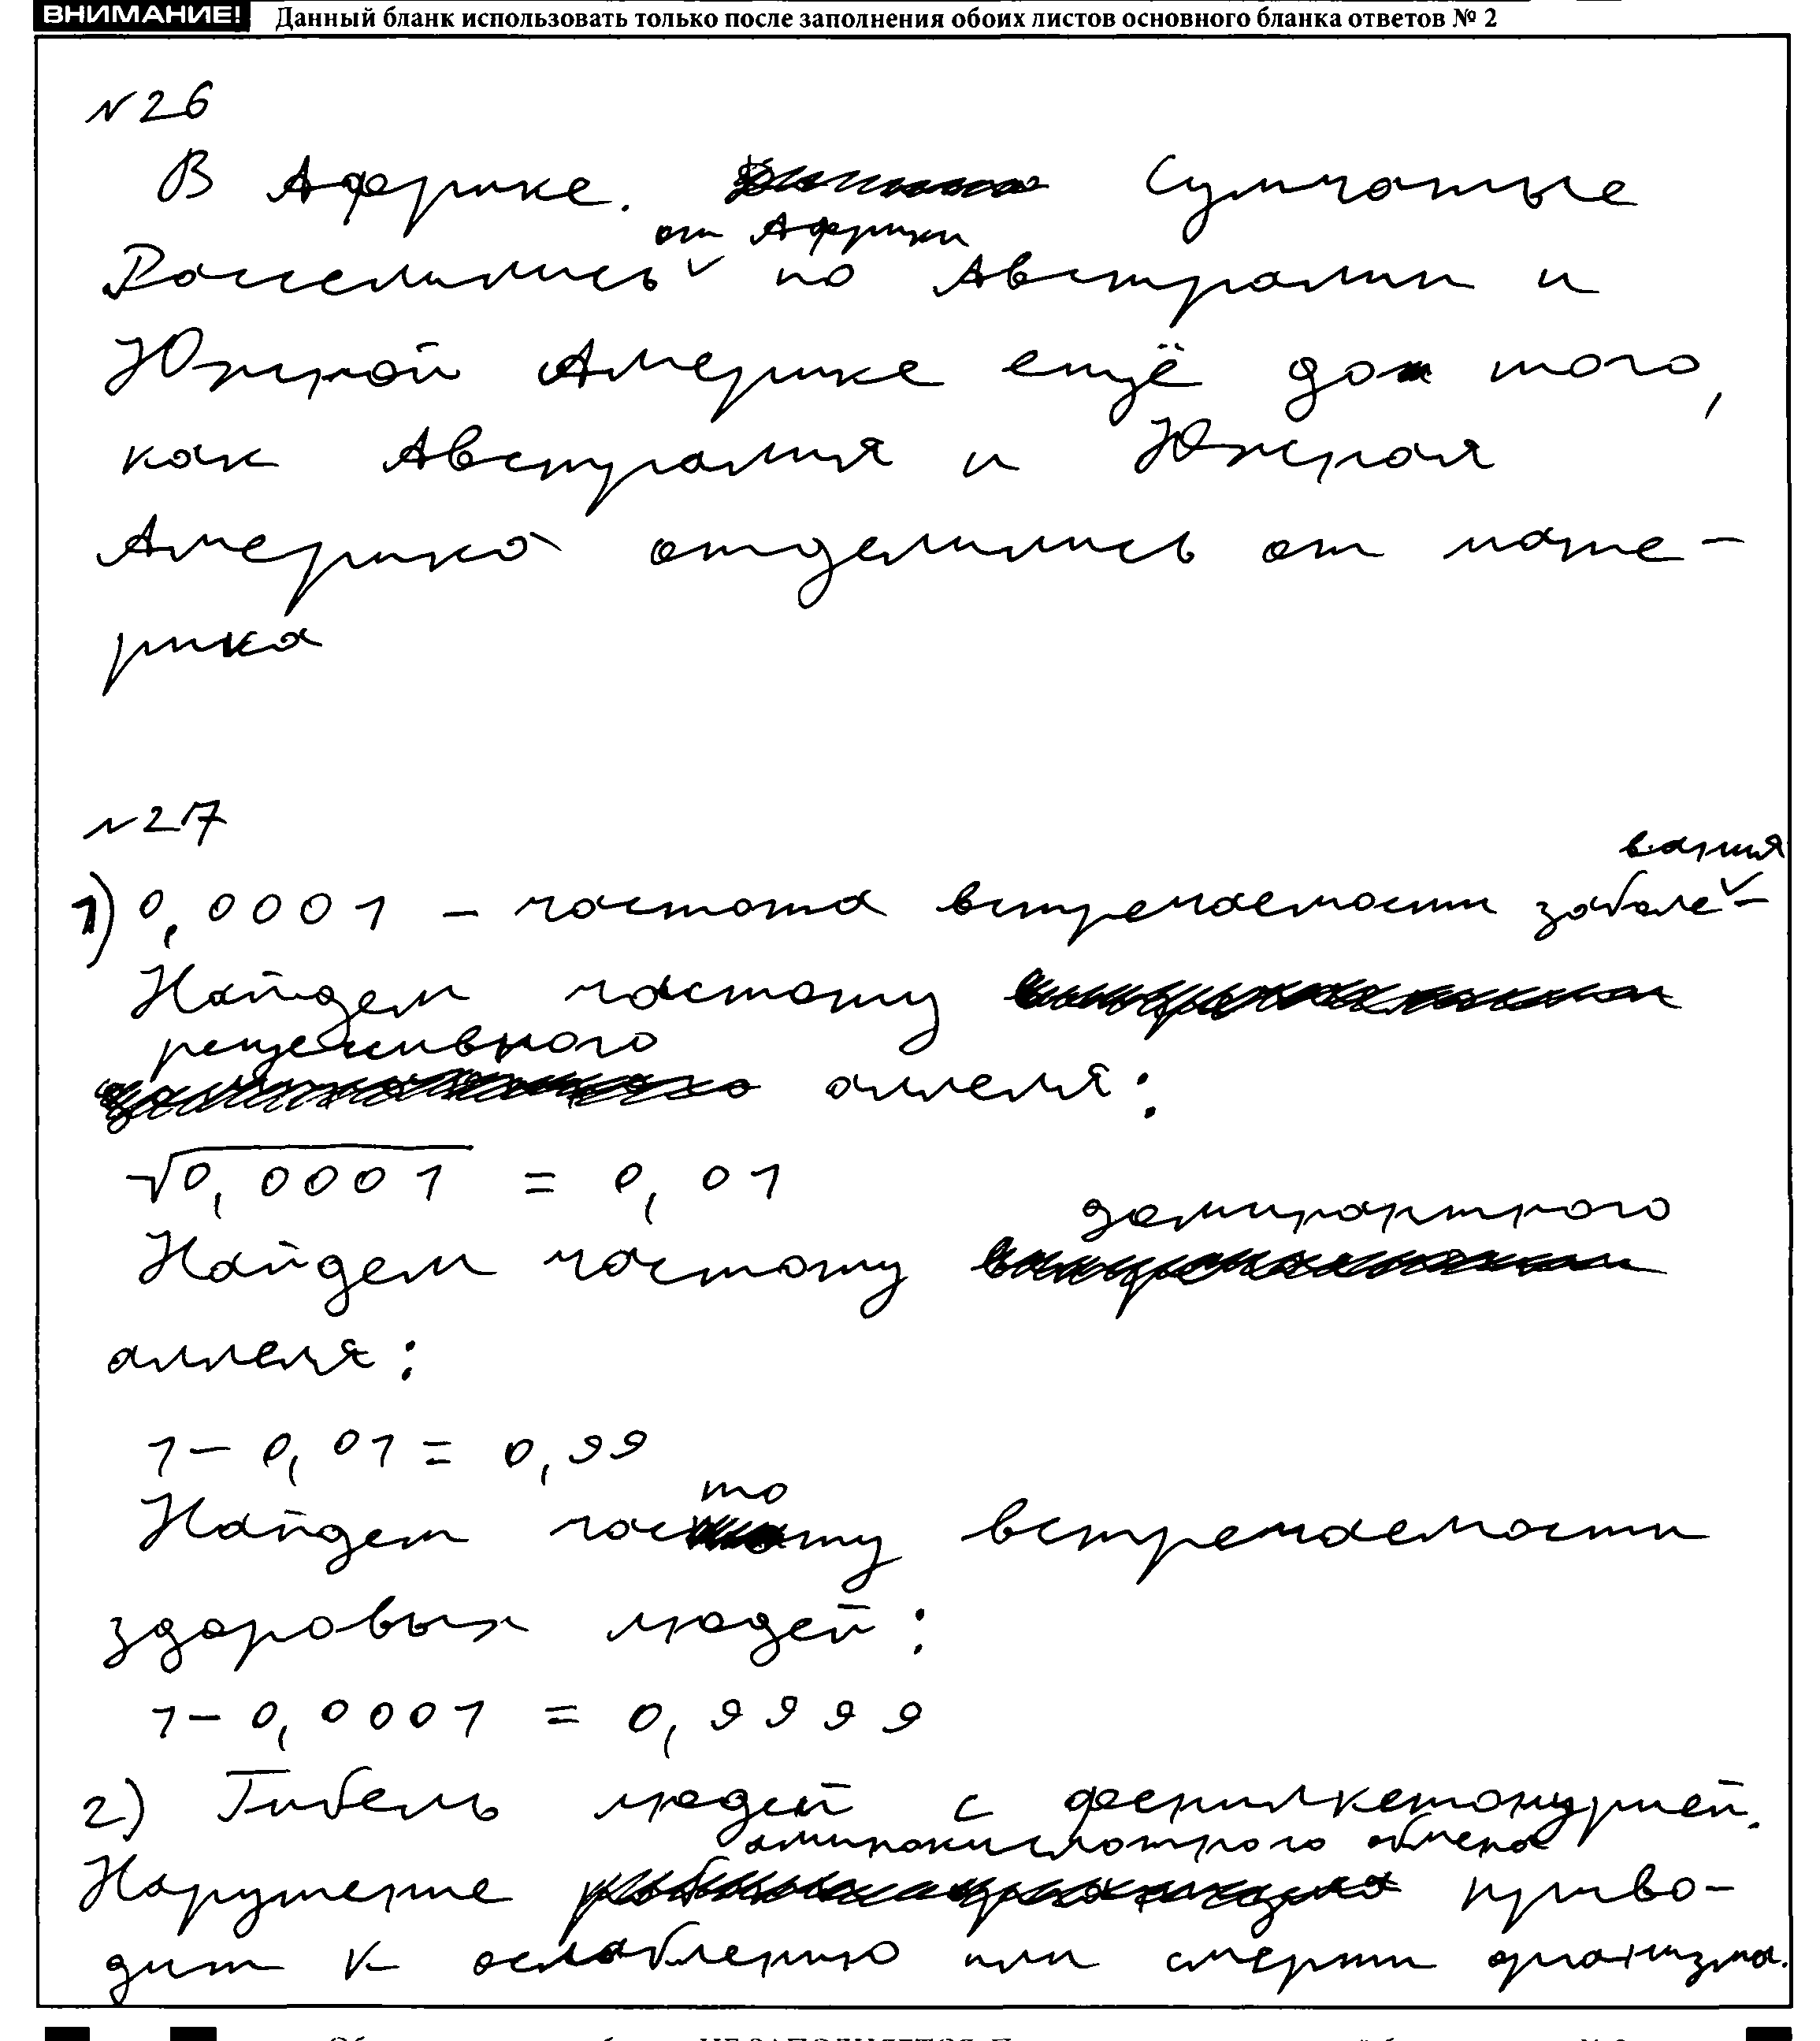 ВНИМАНИЕ! Данный бланк использовать только после заполнения обоих листов основного бланка ответов № 2
№26
В Африке. Сумчатые
от Африки
Расселились по Австралии и
Южной Америке ещё до того,
как Австралия и Южная
Америка отделились от мате-
рика
№27
вания
1) 0,0001 – частота встречаемости заболе-
Найдем частоту
рецессивного
аллеля:
√0,0001 = 0,01
доминантного
Найдем частоту
аллеля:
1 – 0,01 = 0,99
то
Найдем частоту встречаемости
здоровых людей:
1 – 0,0001 = 0,9999
2) Гибель людей с фенилкетонурией.
аминокислотного обмена
Нарушение приво-
дит к ослаблению или смерти организма.